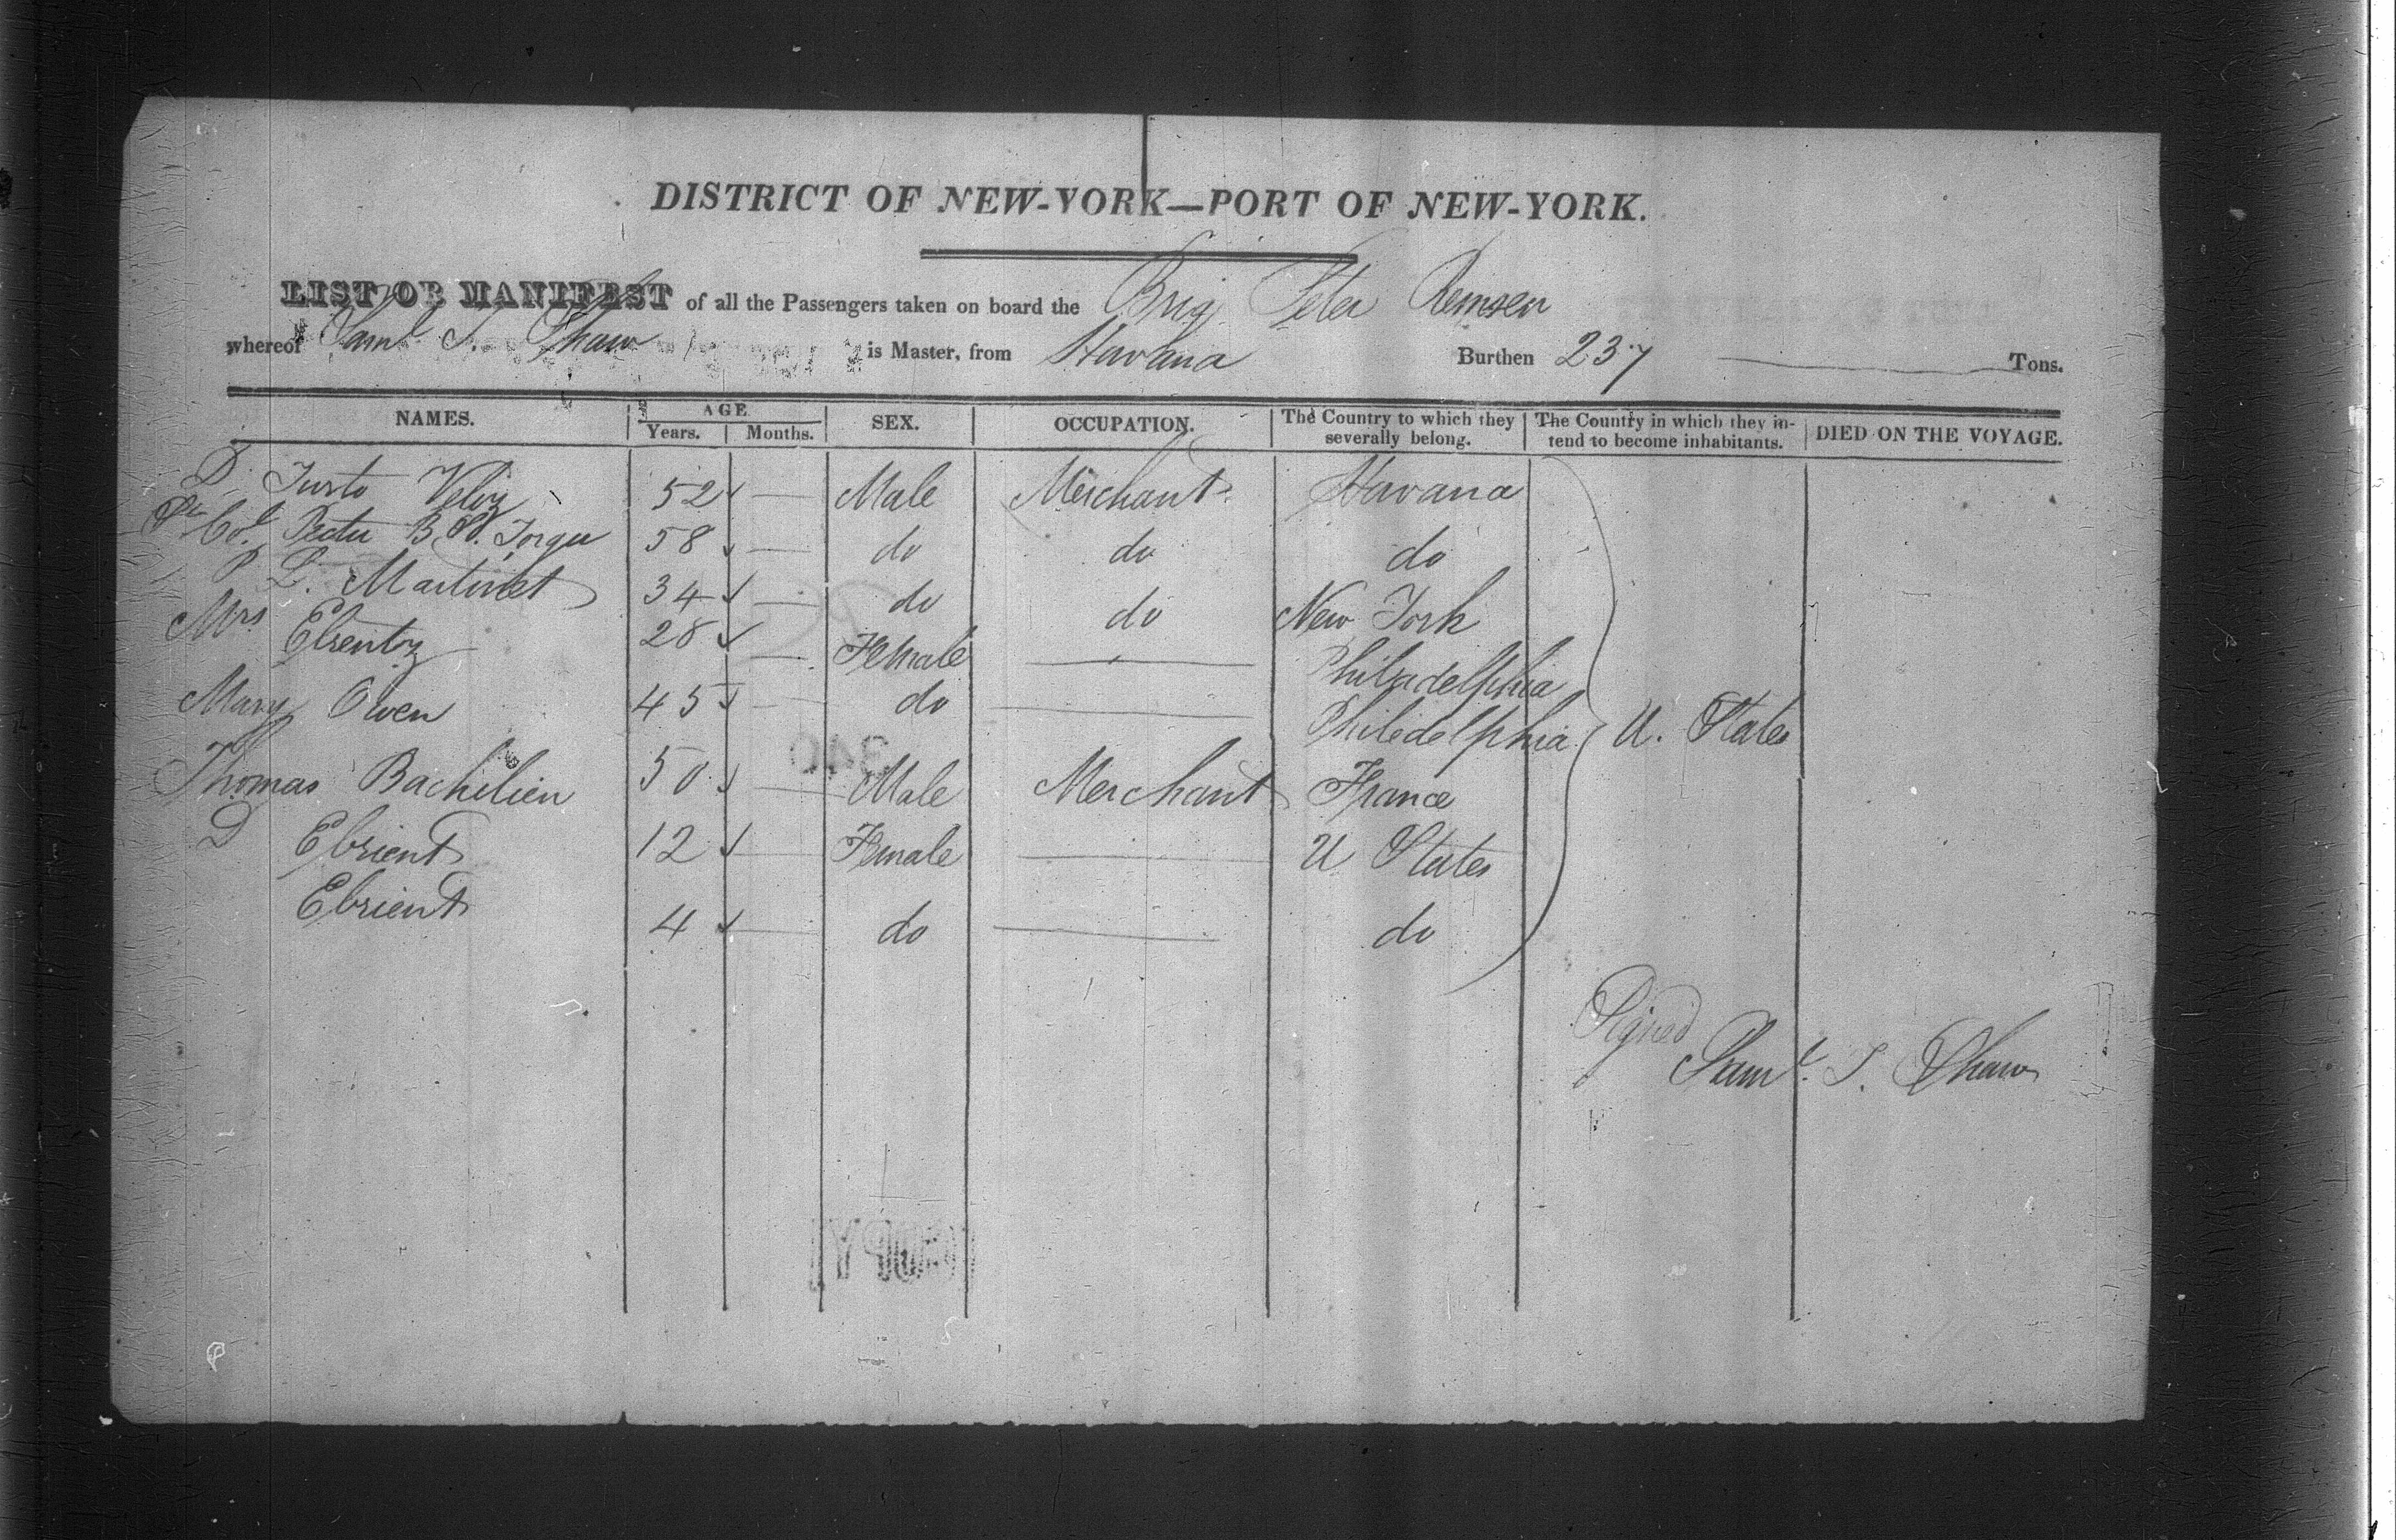 DISTRICT OF NEW-YORK—PORT OF NEW-YORK.
LIST OR MANIFEST of all the Passengers taken on board the Brig Peter Remsen
whereof Saml S. Shaw is Master, from Havana Burthen 237 Tons.
NAMES. AGE SEX. OCCUPATION. The Country to which they severally belong. The Country in which they intend to become inhabitants. DIED ON THE VOYAGE.
Years. Months.
D. Justo Veliz 52 — Male Merchant Havana
Lt Col. B. 58 — do do do
P L. Martinet 34 — do do New York
Mrs Ebrentz 28 — Female — Philadelphia
Mary Owen 45 — do — Philedelphia U. States
Thomas Bachilien 50 — Male Merchant France
D Ebrient 12 — Female — U States
Ebrient 4 — do — do
Signed
Saml. S. Shaw
340
COPY